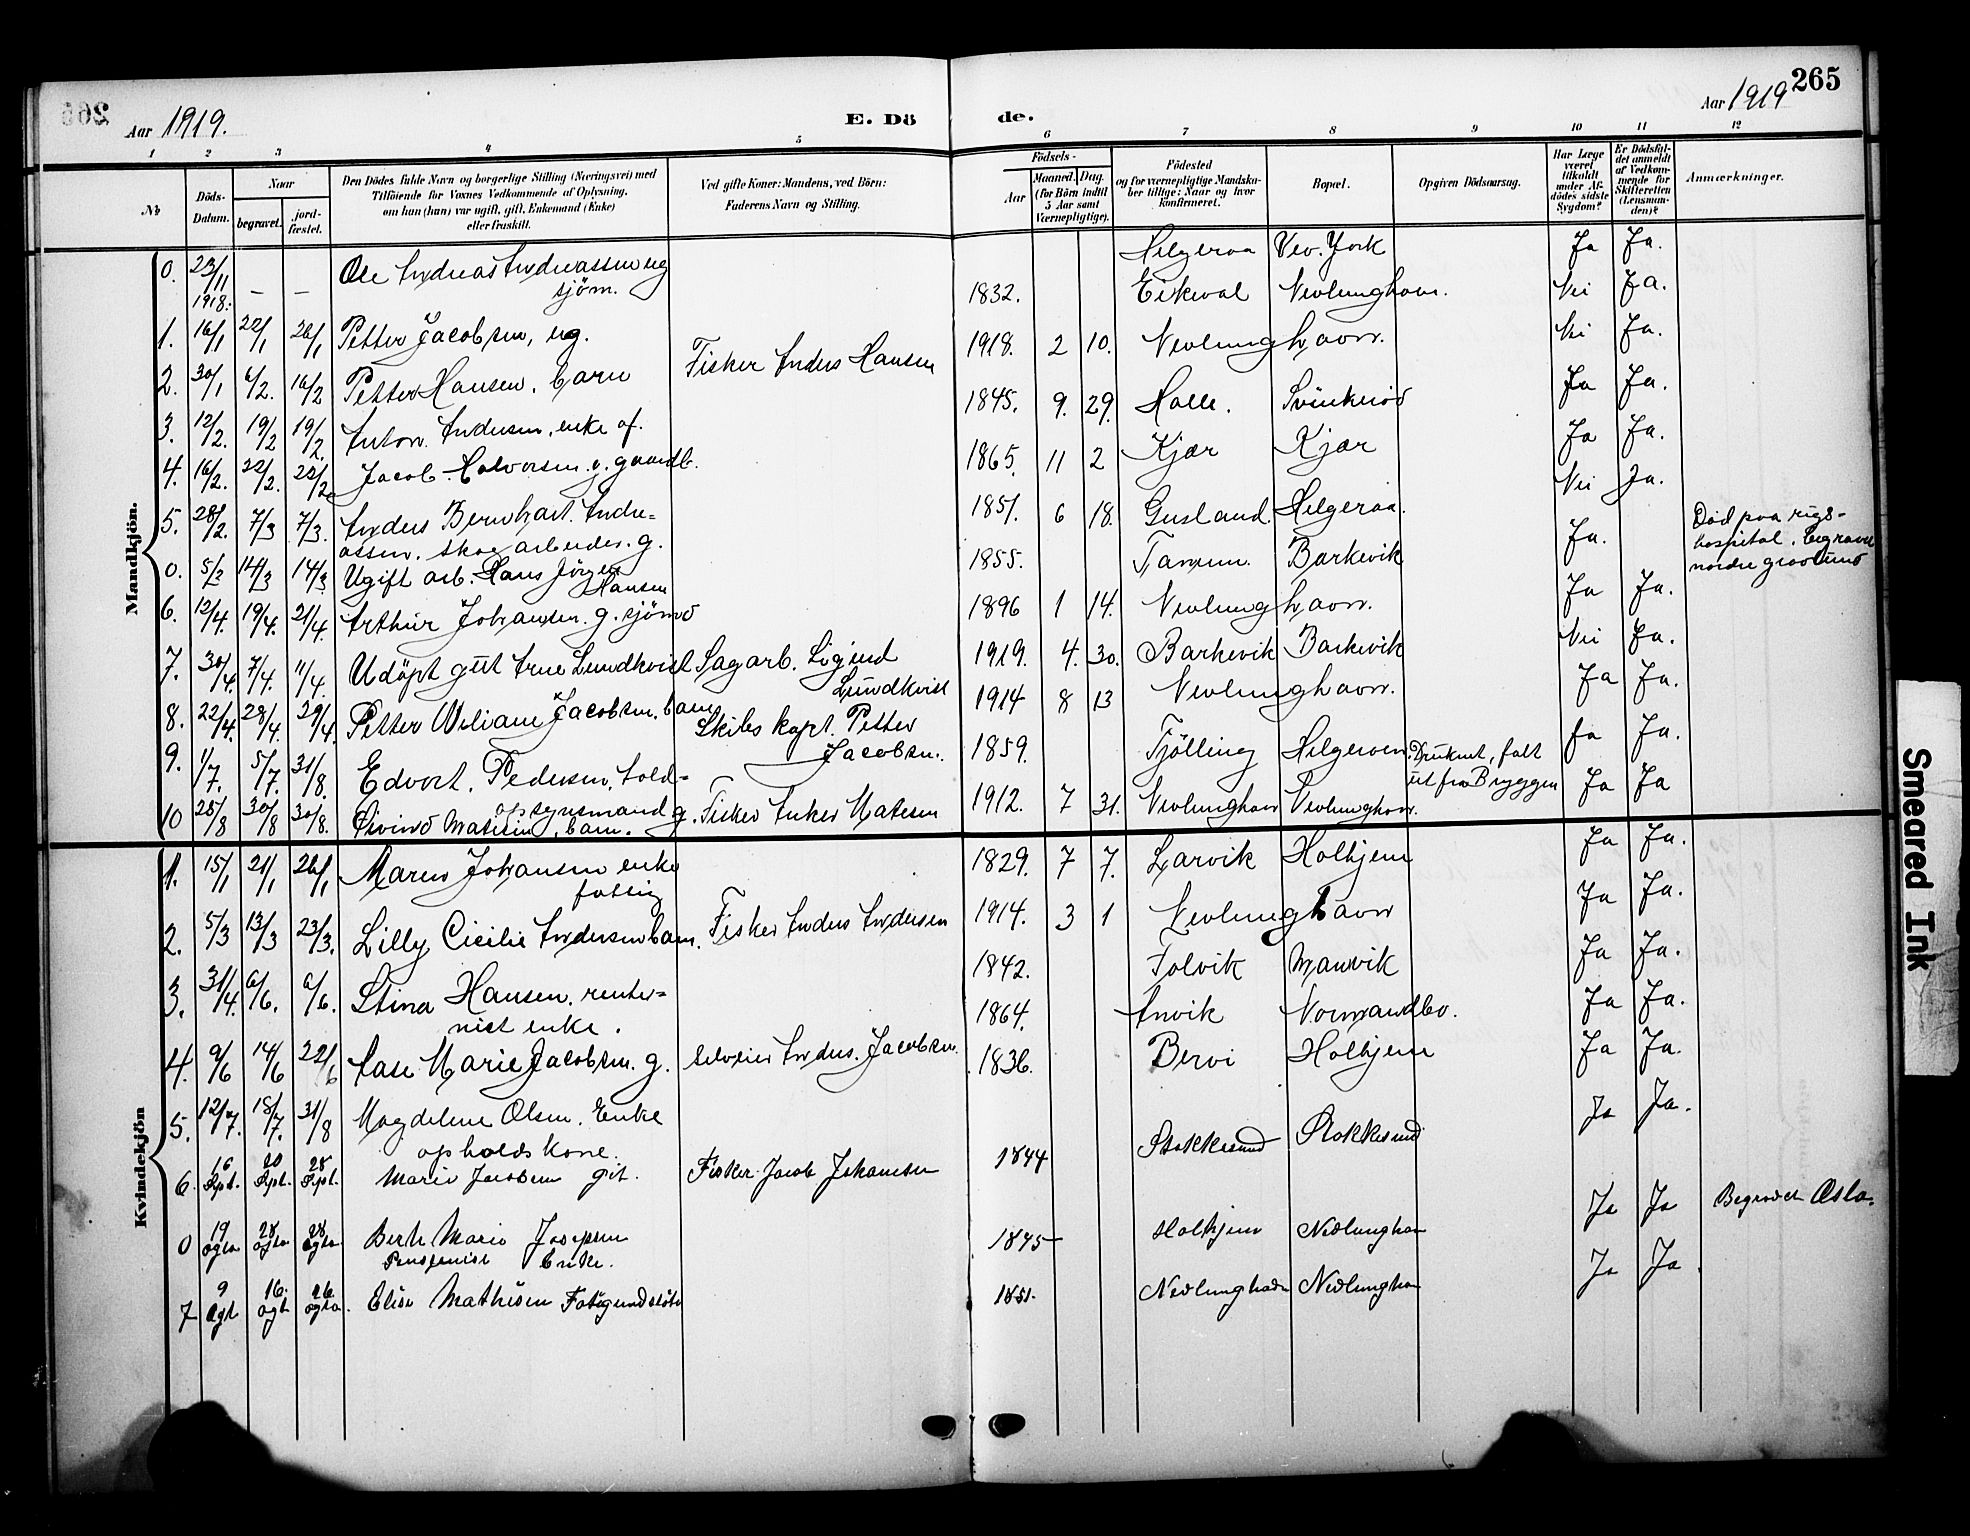 265
Aar 1919.
E. Dö
de.
Aar 1919
265
1 2 3 4 5 6 7 8 9 10 11 12
No
Döds-Datum.
Naar
begravet.
jord-fæstet.
Den Dödes fulde Navn og borgerlige Stilling (Næringsvei) med
Tilföiende for Voxnes Vedkommende af Oplysning,
om han (hun) var ugift, gift, Enkemand (Enke)
eller fraskilt.
Ved gifte Koner: Mandens, ved Börn:
Faderens Navn og Stilling.
Födsels-
Aar
Maaned. Dag.
(for Börn indtil
5 Aar samt
Værnepligtige).
Födested
og for værnepligtige Mandska-
ber tillige: Naar og hvor
Konfirmeret.
Bopæl.
Opgiven Dödsaarsag.
Har Læge
været
tilkaldt
under Af-
dödes sidste
Sygdom?
Er Dödsfal-
det anmeldt
af Vedkom-
mende for
Skifteretten
(Lensman-
den)?
Anmærkninger.
Mandkjön.
0. 23/11 1918. — — Ole Andreas Andreassen ug
sjöm. Helgeroa Ja Ja.
1. 16/1 22/1 26/1 Petter Jacobsen, ug. 1832. Eikeval Nevlunghavn. Nei Ja.
2. 30/1 6/2. 16/2 Petter Hansen. barn Fisker Anders Hansen 1918. 2 10. Nevlunghavn. Nei Ja.
3. 12/2. 19/2 19/2. Anton Andersen, enke af. 1845. 9. 29. Halle. Ja Ja.
4. 16/2. 22/2. 22/2 Jacob Halvorsen. g. gaardb. 1865. 11 2 Kjær Kjær Ja Ja.
5. 28/2. 7/3 7/3. Anders Bernhart. Andre=
assen. skog arbeider. g. 1851. 6 18. Gusland. Helgeroa. Nei Ja.
0. 5/3 14/3 14/3 Ugift arb. Hans Jörgen
Hansen 1855. Tanum. Barkevik Ja. Död paa rigs-
hospital. begravet
nordre gravlund
6. 12/4. 19/4. 21/4. Arthur Johansen. g. sjömd 1896 1 14. Nevlunghavn. Ja Ja.
7. 30/4. 7/4. 11/4. Udöpt gut Arne Lundkvist Sagarb. Sigurd
Lundkvist 1919. 4. 30. Barkevik Barkevik Nei Ja.
8. 22/4. 28/4. 29/4. Petter Wiliam Jacobsen. barn Skibs kapt. Petter
Jacobsen. 1914 8 13 Nevlunghavn. Ja Ja.
9. 1/7. 5/7. 31/8. Edvart. Pedersen, told=
opsynsmand g. 1859. Tjölling Helgeroen. Druknet, falt
ut fra Bryggen Ja Ja.
10 25/8 30/8 30/8. Eivind Matisen, barn. Fisker Anker Matesen 1912. 7 31. Nevlunghavn Nevlunghavn. Ja Ja
Kvindekjön
1. 15/1 21/1 26/1 Maren Johansen enke
fattig 1829. 7 7. Larvik Holhjem Ja Ja.
2. 5/3 13/3 23/3. Lilly Cicilie Andersen barn. Fisker Anders Andersen 1914. 3 1 Nevlunghavn Ja Ja.
3. 31/4. 6/6. 6/6. Stina Hansen. renter=
nist enke. 1842. Folvik Manvik Ja Ja.
4. 9/6 14/6 22/6 Aase Marie Jacobsen. g. Anders. Jacobsen. 1864. Anvik Normandbo. Ja Ja.
5. 12/7. 18/7. 31/8 Magdelene Olsen. Enke
opholds kone. 1836. Bervi Holhjem Ja Ja.
6. 16 Spt. 20 Spt. 28 Spt. Marie Jacobsen git. Fisker Jacob Johansen 1844 Stokkesund Stokkesund Ja Ja.
0 19 ogto 28 ogto 28 ogto Berte Marie Josepsen
Pensjonist Enke. 1845 Holhjem Nedlunghavn Ja Ja Begravet Oslo.
7 9 ogt 16 ogt 26 ogto. Elise Mathisen Fatigunderstöt 1851. Nedlunghavn Nedlunghavn Ja Ja
Smeared Ink